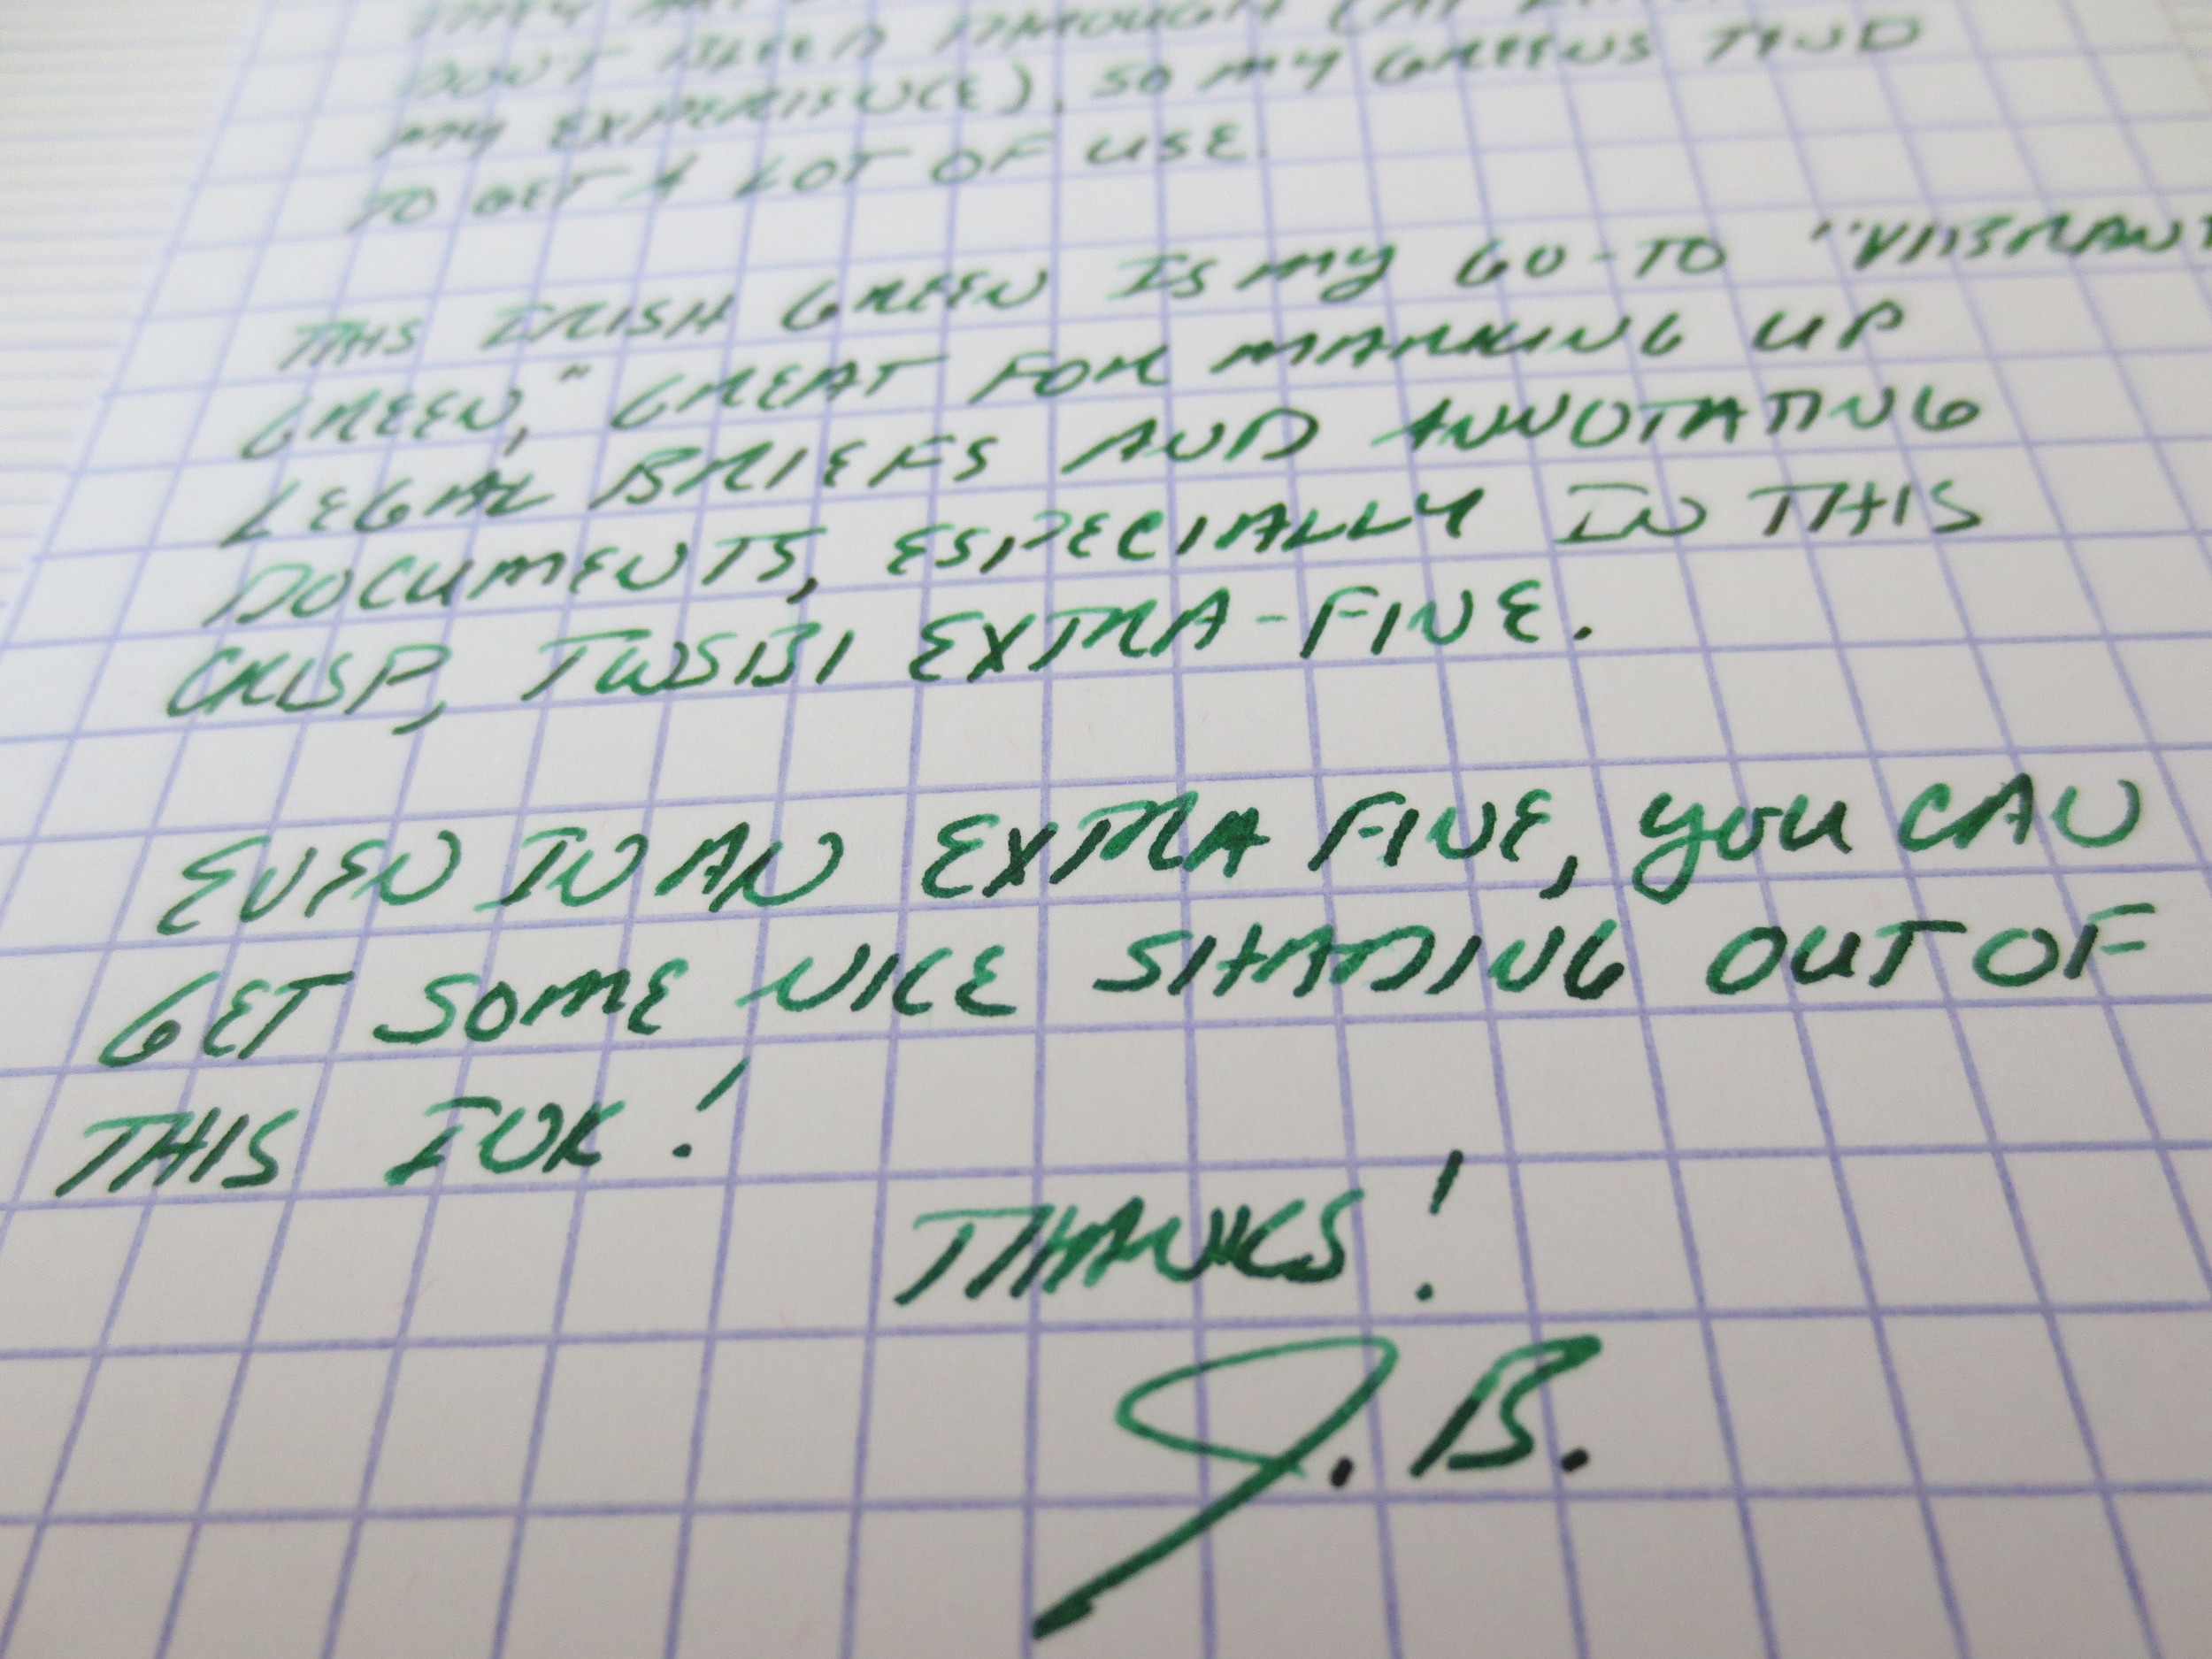 THEY
DON'T BLEED THROUGH (AT LEAST
MY EXPERIENCE), SO MY GREENS TEND
TO GET A LOT OF USE.
THIS IRISH GREEN IS MY GO-TO "VIBRANT
GREEN," GREAT FOR MARKING UP
LEGAL BRIEFS AND ANNOTATING
DOCUMENTS, ESPECIALLY IN THIS
CRISP, TWSBI EXTRA-FINE.
EVEN IN AN EXTRA FINE, YOU CAN
GET SOME NICE SHADING OUT OF
THIS INK!
THANKS!
J.B.